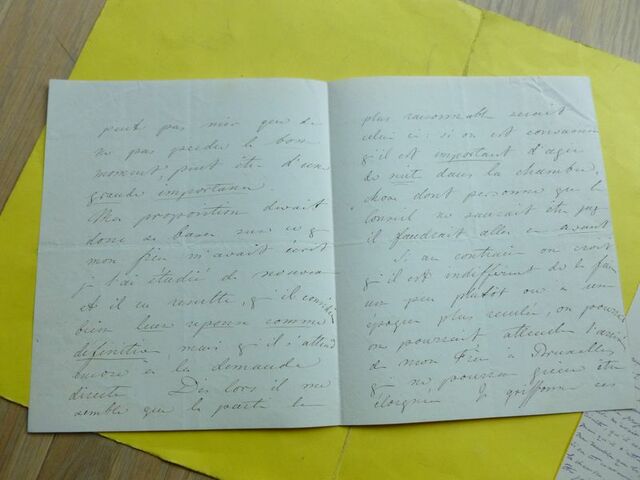 peut pas nier que de
ne pas perdre le bon
moment, peut être d'une
grande importance.
Ma proposition devait
donc se baser sur ce q
mon frère m'avait écrit
je l'ai étudié de nouveau
et il en resulte, q'il considère
bien leur reponse comme
définitive mais q'il s'attend
encore à la demande
directe Dès lors il me
semble que le parti le
plus raisonnable serait
celui ci: si on est convaincu
q'il est important d'agir
de suite dans la chambre,
chose dont personne que le
Conseil ne saurait être juge
il faudrait aller en avant
Si au contraire on croit
q'il est indifferent de le faire
un peu plutôt ou à une
époque plus reculée, on pourrait
on pourrait attendre l'arrivée
de mon Frère à Bruxelles
q ne pourra guère être
éloignée Je griffonne ces